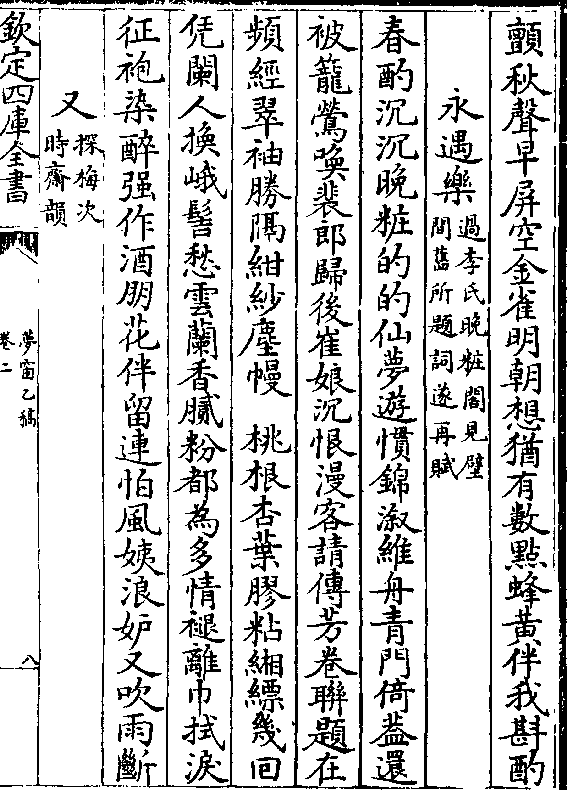 顫秋聲早屏空金雀明朝想猶有數點蜂黃伴我斟酌
永遇樂過李氏晚粧閣見壁
間舊所題詞遂再賦
春酌沉沉晚粧的的仙夢遊慣錦溆維舟青門倚葢還
被籠鶯喚裴郎歸後崔娘沉恨漫客請傳芳卷聯題在
頻經翠袖勝隔紺紗塵幔 桃根杏葉膠粘緗縹幾回
凭闌人換峨髻愁雲蘭香膩粉都為多情褪離巾拭淚
征袍染醉强作酒朋花伴留連怕風姨浪妒又吹雨斷
又探梅次
時齋韻
欽定四庫全書
夢窗乙稿
卷二
八